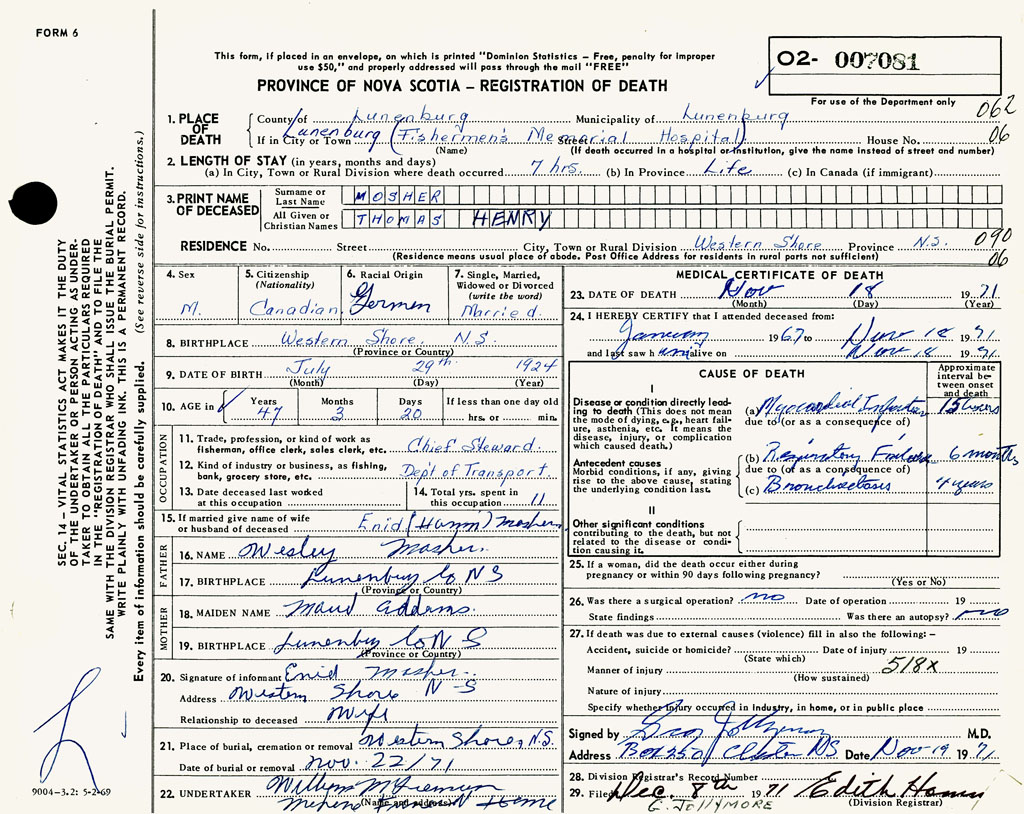 FORM 6
This form, if placed in an envelope, on which is printed "Dominion Statistics – Free, penalty for improper
use $50," and properly addressed will pass through the mail "FREE"
PROVINCE OF NOVA SCOTIA – REGISTRATION OF DEATH
02- 007081
For use of the Department only
062
06
1. PLACE OF DEATH
County of Lunenburg Municipality of Lunenburg
If in City or Town Lunenburg (Fishermen's Memorial Hospital) Street House No.
(Name) (If death occurred in a hospital or institution, give the name instead of street and number)
2. LENGTH OF STAY (in years, months and days)
(a) In City, Town or Rural Division where death occurred 7 hrs. (b) In Province Life (c) In Canada (if immigrant)
3. PRINT NAME OF DECEASED
Surname or Last Name MOSHER
All Given or Christian Names THOMAS HENRY
RESIDENCE No. Street City, Town or Rural Division Western Shore Province N.S. 090
(Residence means usual place of abode. Post Office Address for residents in rural parts not sufficient) 06
4. Sex M.
5. Citizenship (Nationality) Canadian
6. Racial Origin Germen
7. Single, Married, Widowed or Divorced (write the word) Married.
8. BIRTHPLACE Western Shore. N.S.
(Province or Country)
9. DATE OF BIRTH July 29th 1924
(Month) (Day) (Year)
10. AGE in Years 47 Months 3 Days 20 If less than one day old hrs. or min.
OCCUPATION
11. Trade, profession, or kind of work as fisherman, office clerk, sales clerk, etc. Chief Steward.
12. Kind of industry or business, as fishing, bank, grocery store, etc. Dept of Transport
13. Date deceased last worked at this occupation
14. Total yrs. spent in this occupation 11
15. If married give name of wife or husband of deceased Enid (Hamm) Mosher
FATHER
16. NAME Wesley Mosher.
17. BIRTHPLACE Lunenburg Co NS
(Province or Country)
MOTHER
18. MAIDEN NAME Maud Addams.
19. BIRTHPLACE Lunenburg Co N S
(Province or Country)
20. Signature of informant Enid Mosher
Address Western Shore N S
Relationship to deceased Wife
21. Place of burial, cremation or removal Western Shore, N.S.
Date of burial or removal Nov. 22/71
22. UNDERTAKER William
(Name and address) Home
MEDICAL CERTIFICATE OF DEATH
23. DATE OF DEATH Nov 18 1971
(Month) (Day) (Year)
24. I HEREBY CERTIFY that I attended deceased from:
January 1967 to Nov 18 1971
and last saw him alive on Nov 18 1971
CAUSE OF DEATH
Approximate interval between onset and death
I
Disease or condition directly leading to death (This does not mean the mode of dying, e.g., heart failure, asthenia, etc. It means the disease, injury, or complication which caused death.)
(a) Myocardial Infarction 15 hours
due to (or as a consequence of)
Antecedent causes
Morbid conditions, if any, giving rise to the above cause, stating the underlying condition last.
(b) Respiratory Failure 6 months
due to (or as a consequence of)
(c) Bronchiectasis 4 years
II
Other significant conditions contributing to the death, but not related to the disease or condition causing it.
25. If a woman, did the death occur either during pregnancy or within 90 days following pregnancy?
(Yes or No)
26. Was there a surgical operation? no Date of operation 19
State findings Was there an autopsy? no
27. If death was due to external causes (violence) fill in also the following: –
Accident, suicide or homicide? Date of injury 19
(State which) 518x
Manner of injury
(How sustained)
Nature of injury
Specify whether injury occurred in industry, in home, or in public place
Signed by M.D.
Address Box 350 Chester NS Date Nov 19 1971
28. Division Registrar's Record Number
29. Filed Dec. 8th 1971 Edith Hamm
(Division Registrar)
G. JOLLYMORE
SEC. 14 – VITAL STATISTICS ACT MAKES IT THE DUTY
OF THE UNDERTAKER OR PERSON ACTING AS UNDERTAKER
TO OBTAIN ALL THE PARTICULARS REQUIRED
IN THE "REGISTRATION OF DEATH" AND TO FILE THE
SAME WITH THE DIVISION REGISTRAR WHO SHALL ISSUE THE BURIAL PERMIT.
WRITE PLAINLY WITH UNFADING INK. THIS IS A PERMANENT RECORD.
Every item of information should be carefully supplied. (See reverse side for instructions.)
9004-3.2: 5-2-69